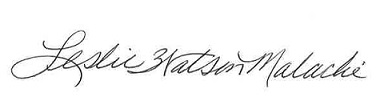 Leslie Watson Malachi